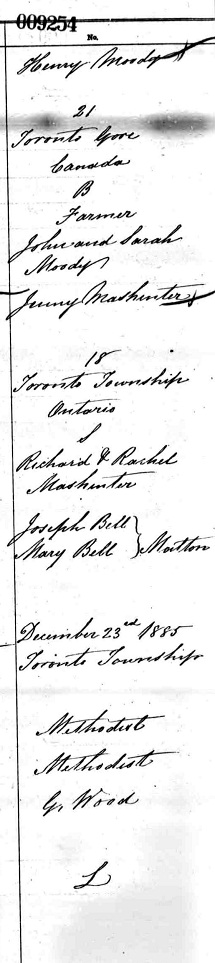 009254
No.
Henry Moody
21
Toronto Gore
Canada
B
Farmer
John and Sarah
Moody
Jenny Mashinter
18
Toronto Township
Ontario
S
Richard & Rachel
Mashinter
Joseph Bell
Mary Bell } Malton
December 23rd 1885
Toronto Township
Methodist
Methodist
G. Wood
L